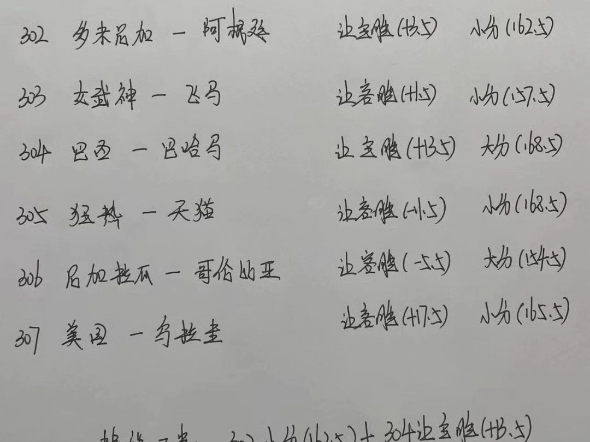 302 多米尼加 — 阿根廷 让主胜(+3.5) 小分(162.5)
303 女武神 — 飞马 让客胜(+1.5) 小分(157.5)
304 巴西 — 巴哈马 让主胜(+13.5) 大分(168.5)
305 狂热 — 天猫 让客胜(-1.5) 小分(162.5)
306 尼加拉瓜 — 哥伦比亚 让客胜(-5.5) 大分(154.5)
307 美国 — 乌拉圭 让客胜(+17.5) 小分(165.5)
302小分(162.5)+304让主胜(+13.5)